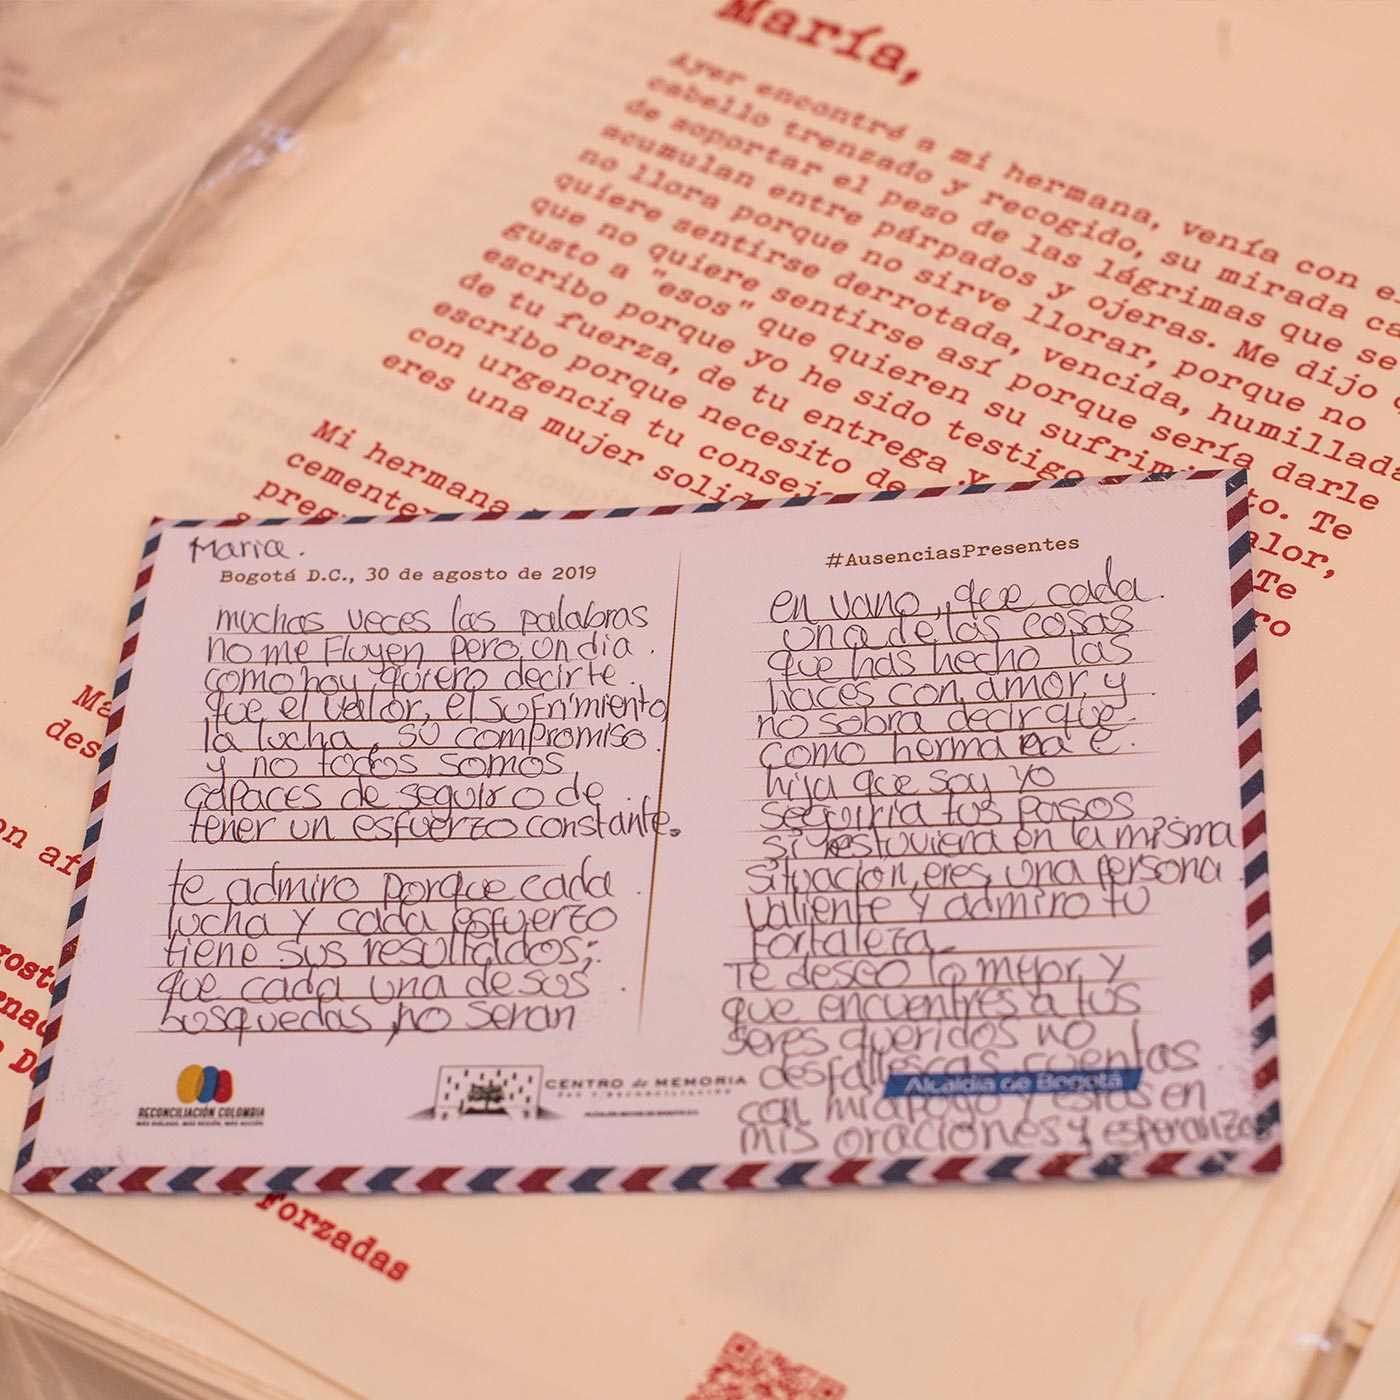 María,
Ayer encontré a mi hermana, venía con e
cabello trenzado y recogido, su mirada ca
de soportar el peso de las lágrimas que se
acumulan entre párpados y ojeras. Me dijo
no llora porque no sirve llorar, porque no
quiere sentirse derrotada, vencida, humillada
que no quiere sentirse así porque sería darle
gusto a "esos" que quieren su sufrim to. Te
escribo porque yo he sido testigo alor,
de tu fuerza, de tu entrega y Te
escribo porque necesito de ro
con urgencia tu consejo
eres una mujer solid
Mi hermana
cementer
preg
Ma
des
on af
gosto
rnac
D
Forzadas
Maria.
Bogotá D.C., 30 de agosto de 2019
muchas veces las palabras
no me fluyen pero un dia
como hoy quiero decirte
que el valor, el sufrimiento
la lucha, su compromiso
y no todos somos
capaces de seguir o de
tener un esfuerzo constante.
te admiro porque cada
lucha y cada esfuerzo
tiene sus resultados;
que cada una de sus
busquedas, no seran
#AusenciasPresentes
en vano, que cada
una de las cosas
que has hecho las
haces con amor, y
no sobra decir que
como hermana e
hija que soy yo
seguiria tus pasos
si estuviera en la misma
situación, eres una persona
valiente y admiro tu
fortaleza.
Te deseo lo mejor, y
que encuentres a tus
seres queridos no
desfallescas, cuentas
con mi apoyo y estas en
mis oraciones y esperanzas
RECONCILIACIÓN COLOMBIA
MÁS DIÁLOGO, MÁS REGIÓN, MÁS ACCIÓN
CENTRO de MEMORIA
PAZ Y RECONCILIACIÓN
ALCALDÍA MAYOR DE BOGOTÁ D.C.
Alcaldía de Bogotá